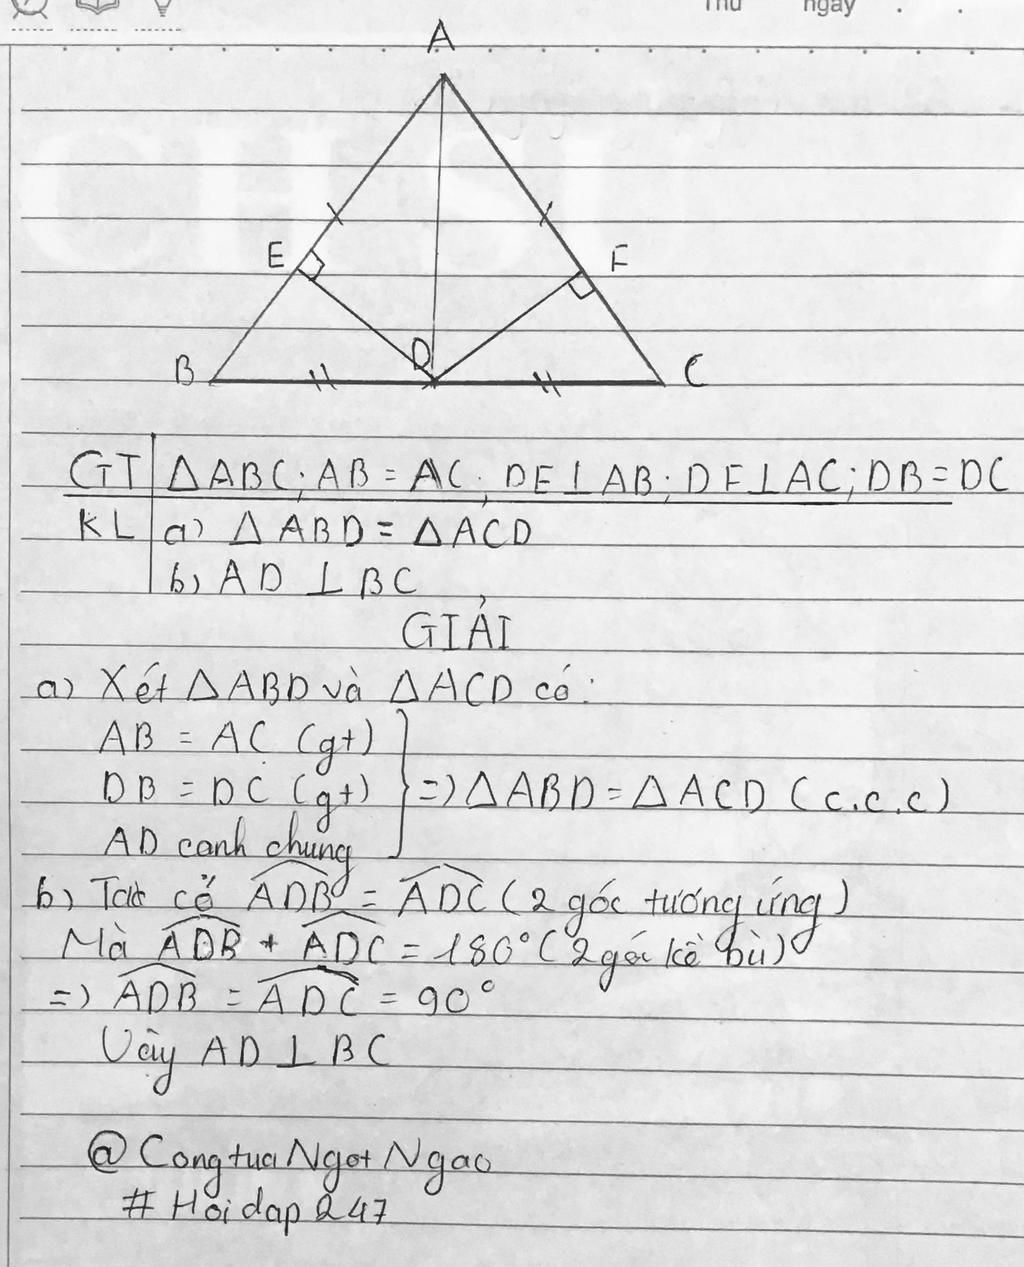 Thứ ngày . .
A
E F
B D C
GT ΔABC; AB = AC; DE⊥AB; DF⊥AC; DB = DC
KL a) ΔABD = ΔACD
b) AD ⊥ BC
GIẢI
a) Xét ΔABD và ΔACD có:
AB = AC (gt)
DB = DC (gt) } => ΔABD = ΔACD (c.c.c)
AD canh chung
b) Ta có ADB̂ = ADĈ (2 góc tương ứng)
Mà ADB̂ + ADĈ = 180° (2 góc kề bù)
=> ADB̂ = ADĈ = 90°
Vậy AD ⊥ BC
@ CongtuaNgotNgao
# Hoidap247